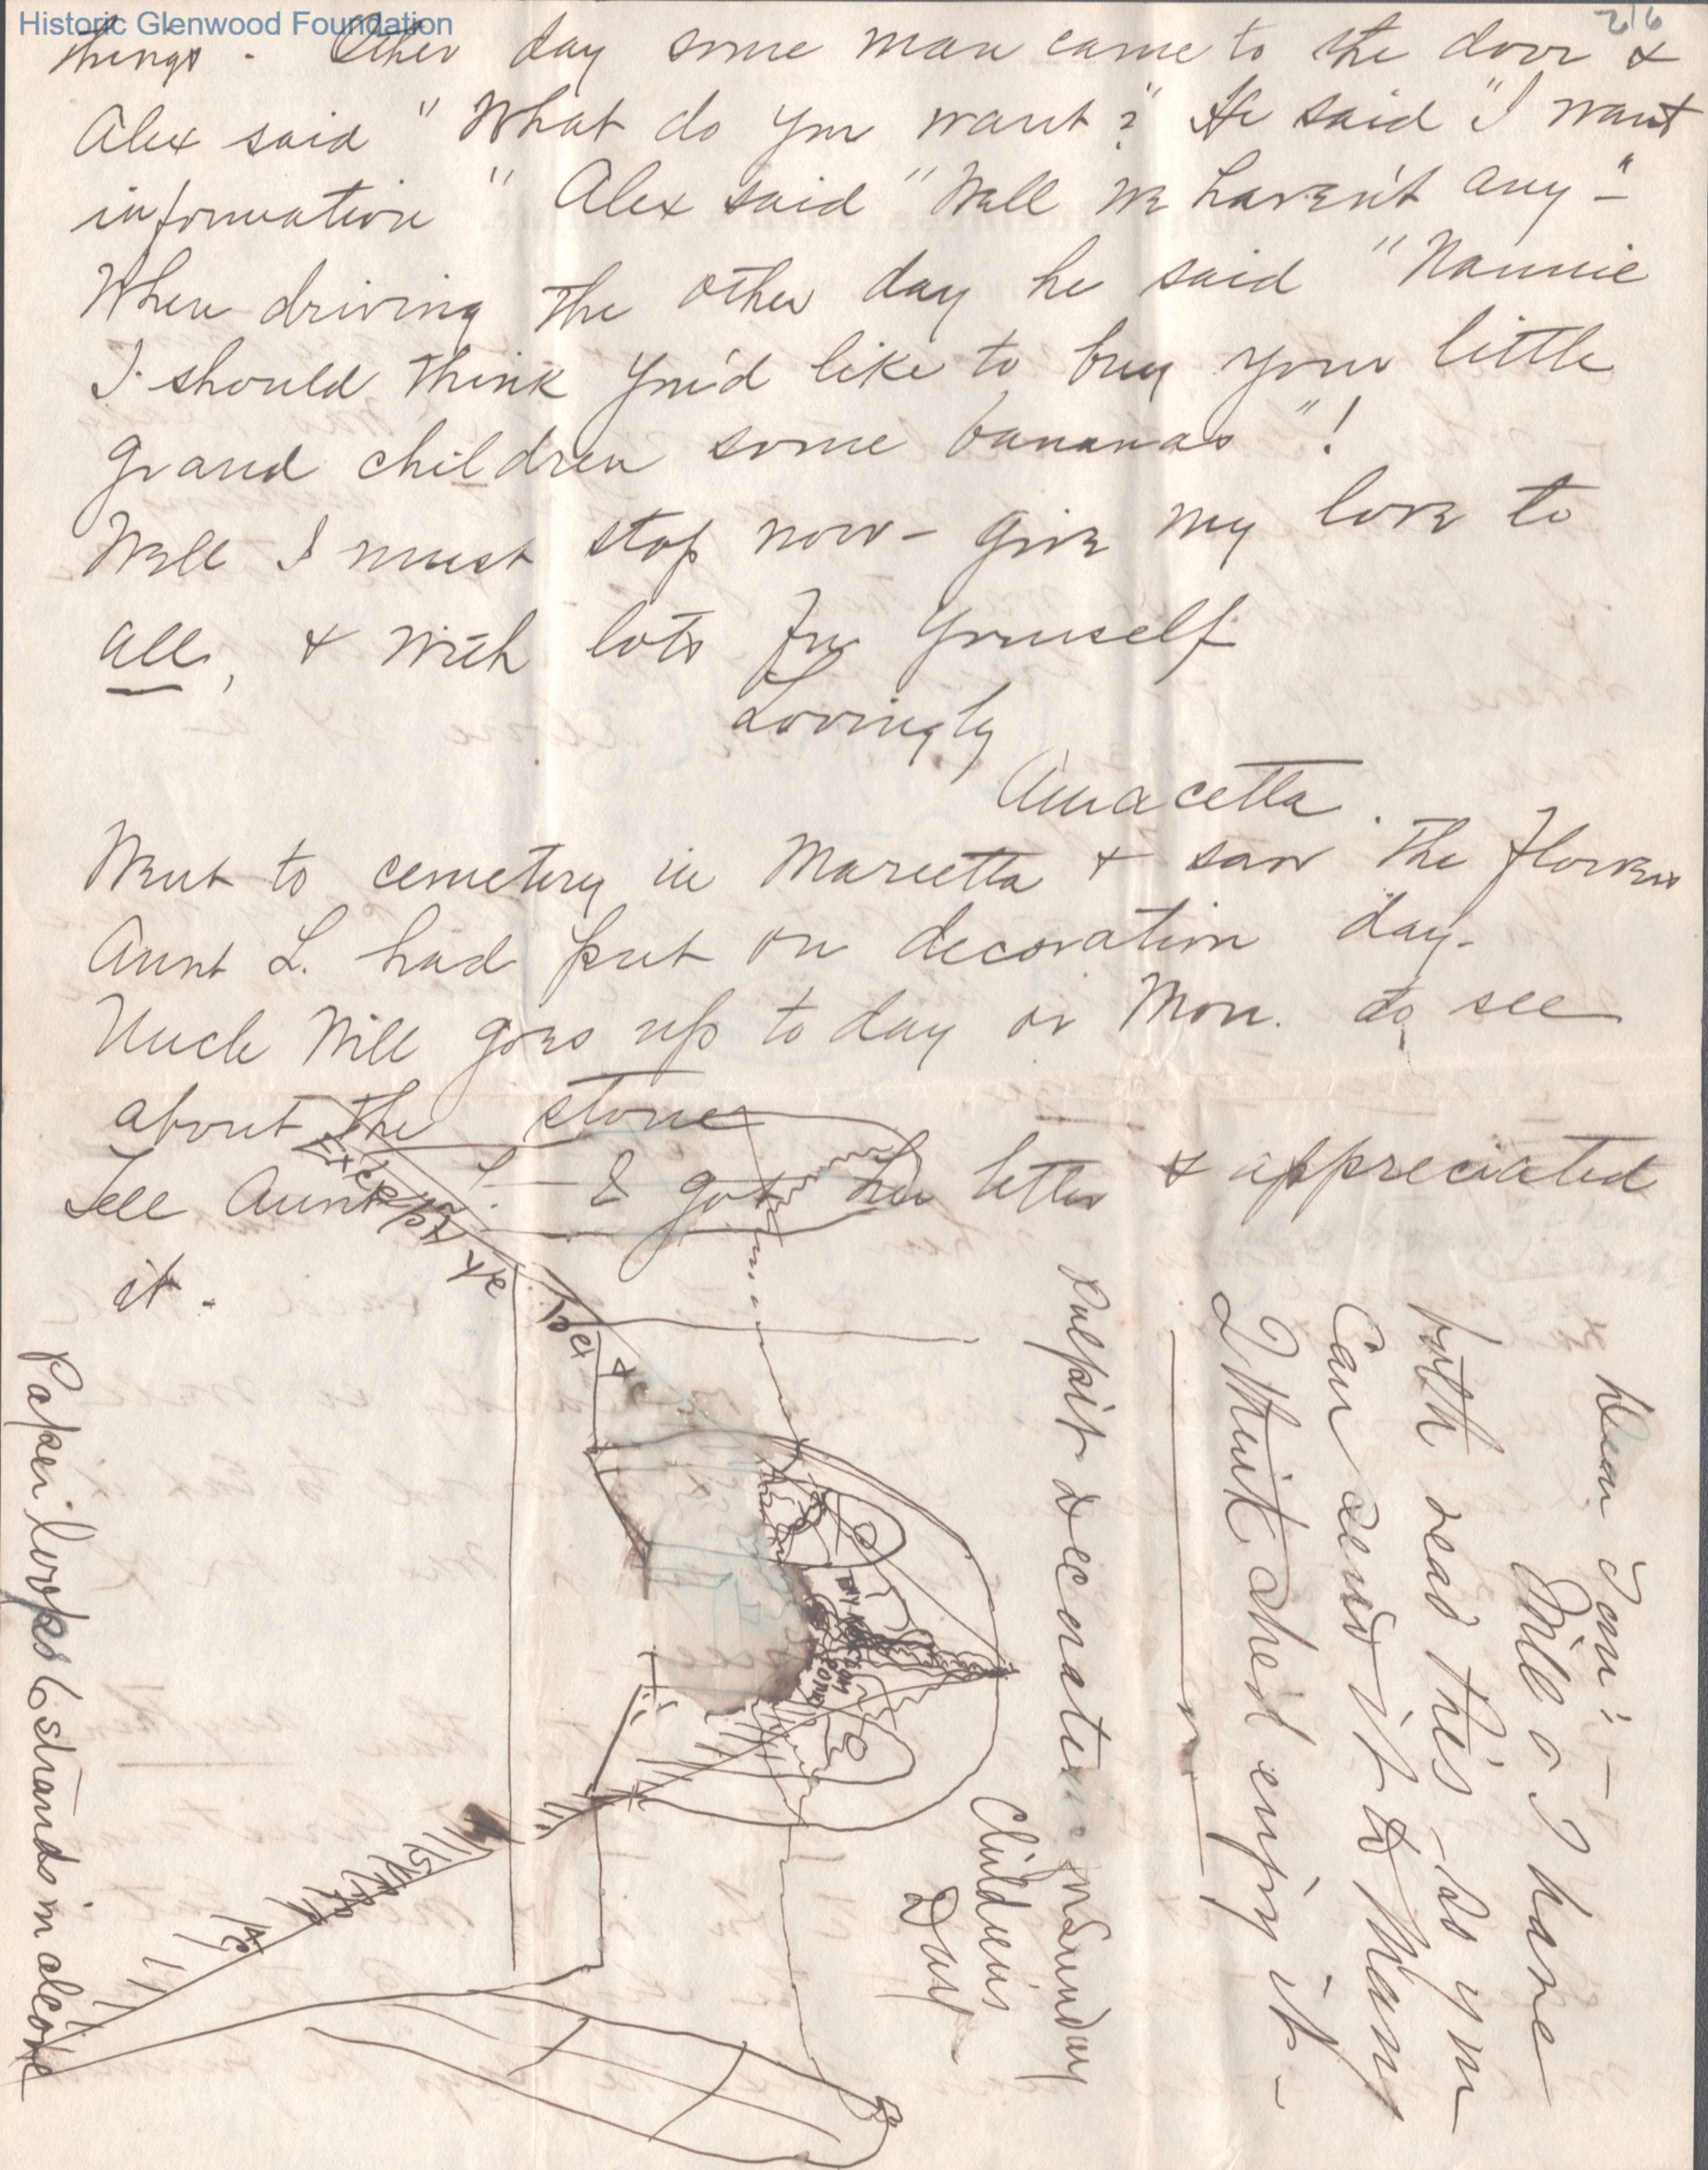 Historic Glenwood Foundation
216
things - Other day some man came to the door &
Alex said "What do you want?" He said "I want
information" Alex said "Well we haven't any"-
When driving the other day he said "Nannie
I should think you'd like to buy your little
grand children some bananas"!
Well I must stop now - Give my love to
all, & with lots for yourself
Lovingly
Annacetta.
Went to cemetery in Marietta & saw the flowers
Aunt L. had put on decoration day.
Uncle Will goes up to day or Mon. to see
about the stone
Tell Aunt L. - I got her letter & appreciated
it.
Dear Tom: -
Mill & I have
both read this - so you
can send it to Mamy
I think she'd enjoy it -
Pulpit decoration on Sunday
Children's
Day
Except ye
Paper loops 6 strands in alcove